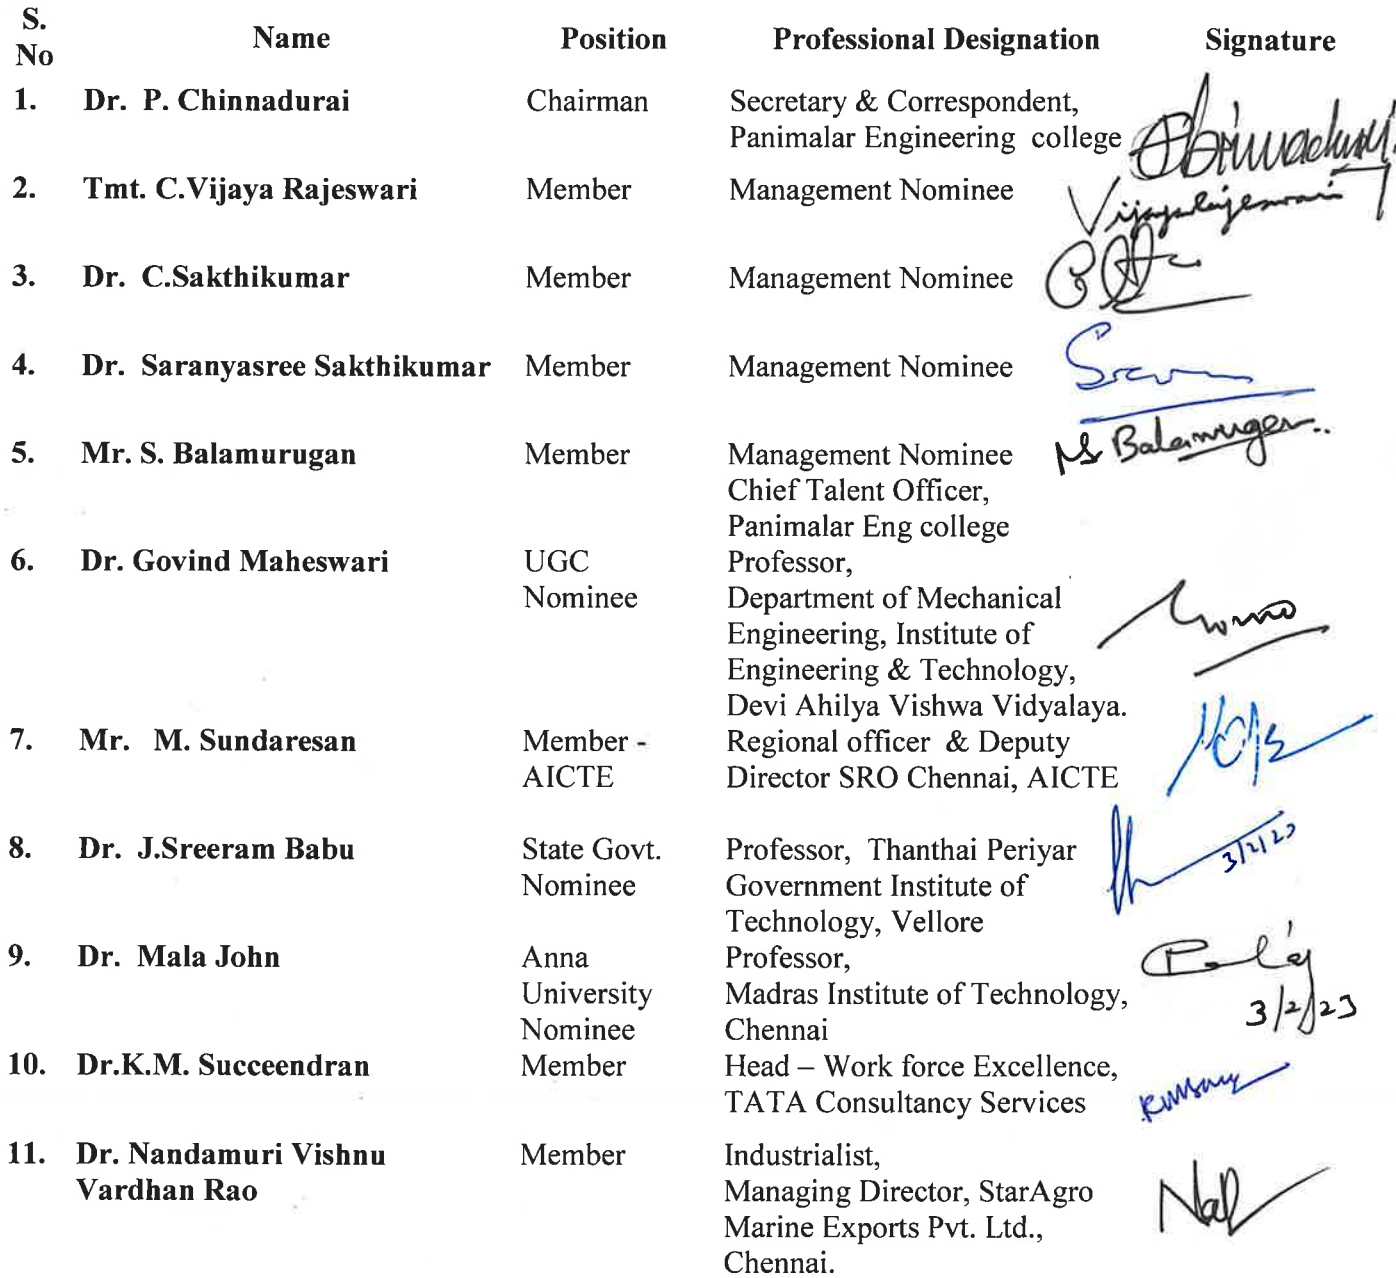 S. No Name Position Professional Designation Signature
1. Dr. P. Chinnadurai Chairman Secretary & Correspondent,
Panimalar Engineering college
2. Tmt. C.Vijaya Rajeswari Member Management Nominee
Vijayarajeswari
3. Dr. C.Sakthikumar Member Management Nominee
4. Dr. Saranyasree Sakthikumar Member Management Nominee
5. Mr. S. Balamurugan Member Management Nominee Balamurugan
Chief Talent Officer,
Panimalar Eng college
6. Dr. Govind Maheswari UGC Professor,
Nominee Department of Mechanical
Engineering, Institute of
Engineering & Technology,
Devi Ahilya Vishwa Vidyalaya.
7. Mr. M. Sundaresan Member - Regional officer & Deputy
AICTE Director SRO Chennai, AICTE
8. Dr. J.Sreeram Babu State Govt. Professor, Thanthai Periyar 3/2/23
Nominee Government Institute of
Technology, Vellore
9. Dr. Mala John Anna Professor,
University Madras Institute of Technology, 3/2/23
Nominee Chennai
10. Dr.K.M. Succeendran Member Head – Work force Excellence,
TATA Consultancy Services
11. Dr. Nandamuri Vishnu Member Industrialist,
Vardhan Rao Managing Director, StarAgro
Marine Exports Pvt. Ltd.,
Chennai.